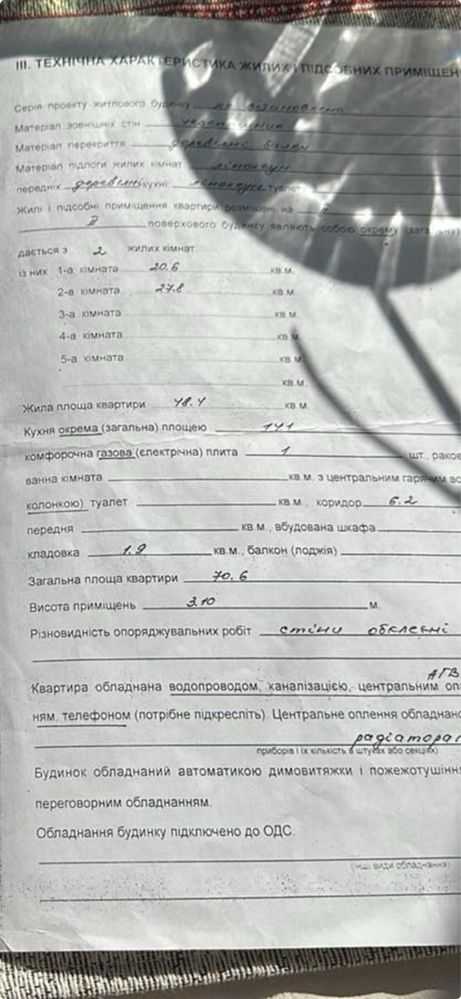 III. ТЕХНІЧНА ХАРАКТЕРИСТИКА ЖИЛИХ І ПІДСОБНИХ ПРИМІЩЕН
Серія проекту житлового будинку не встановлена
Матеріал зовнішніх стін
Матеріал перекриття деревяні балки
Матеріал підлоги жилих кімнат лінолеум
передніх деревяні кухні туалет
Жилі і підсобні приміщення квартири розміщені на 2
2 поверхового будинку являють собою окрему (загальну)
дається з 2 жилих кімнат
із них 1-а кімната 20.6 кв.м.
2-а кімната 27.8 кв.м.
3-а кімната кв.м.
4-а кімната кв.м.
5-а кімната кв.м.
кв.м.
Жила площа квартири 48.4 кв.м.
Кухня окрема (загальна) площею 14.1
комфорочна газова (єлектрічна) плита 1 шт., раков
ванна кімната кв.м. з центральним гарячим во
колонкою) туалет кв.м., коридор 6.2
передня кв.м., вбудована шкафа
кладовка 1.9 кв.м., балкон (лоджія)
Загальна площа квартири 70.6
Висота приміщень 3.10 м.
Різновидність опоряджувальних робіт стіни обклеєні
АГВ
Квартира обладнана водопроводом, каналізацією, центральним оп
ням, телефоном (потрібне підкресліть). Центральне оплення обладнано
радіатора
приборів і їх кількість в штуках або секціях)
Будинок обладнаний автоматикою димовитяжки і пожежотушінн
переговорним обладнанням.
Обладнання будинку підключено до ОДС.
(інші види обладнання)